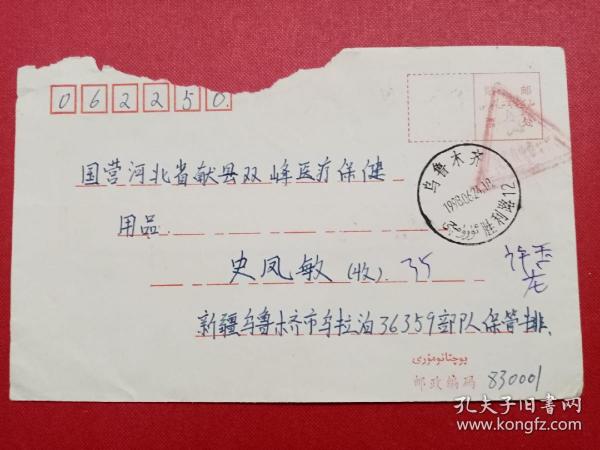 062250
国营河北省献县双峰医疗保健
用品
史凤敏(收) 35
新疆乌鲁木齐市乌拉泊36359部队保管排
يوچتانومۇرى
邮政编码 830001
乌鲁木齐
1998.06.24.10
胜利路12
孔夫子旧书网
www.kongfz.com